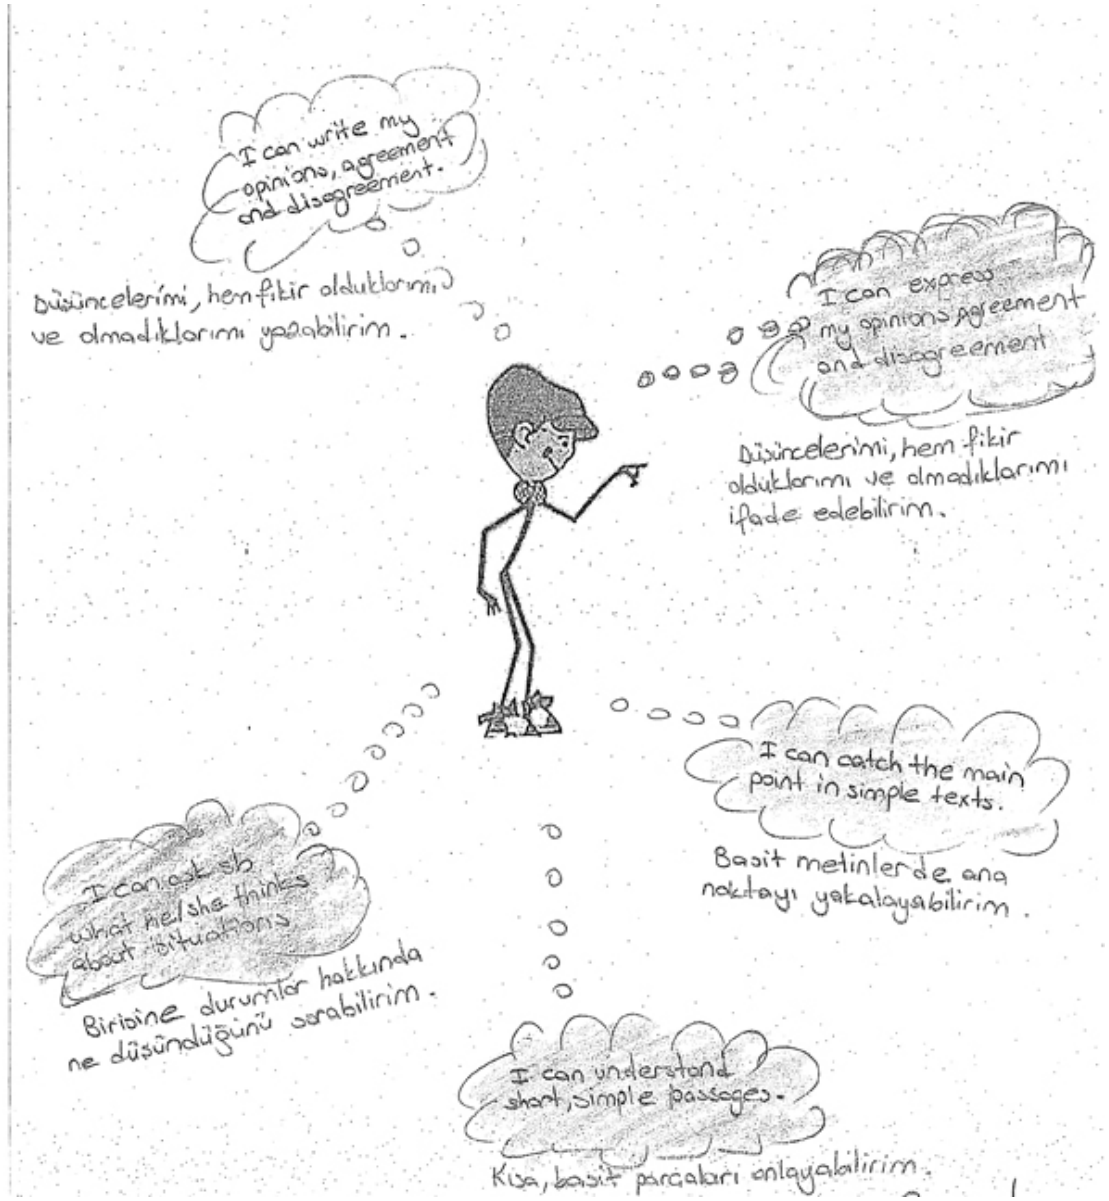 I can write my
opinions, agreement
and disagreement.
Düşüncelerimi, hem fikir olduklarımı
ve olmadıklarımı yazabilirim.
I can express
my opinions, agreement
and disagreement
Düşüncelerimi, hem fikir
olduklarımı ve olmadıklarımı
ifade edebilirim.
I can catch the main
point in simple texts.
Basit metinlerde ana
noktayı yakalayabilirim.
I can ask sb
what he/she thinks
about situations
Birisine durumlar hakkında
ne düşündüğünü sorabilirim.
I can understand
short, simple passages.
Kısa, basit parçaları anlayabilirim.